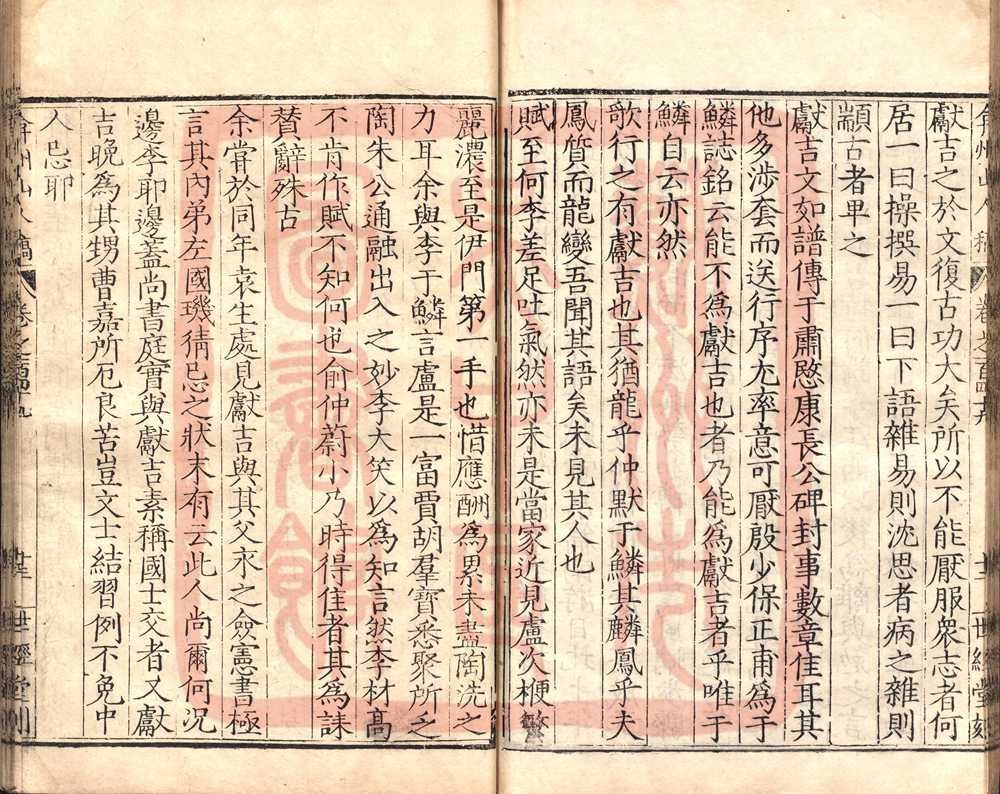 弇州山人稿 卷之一百四十九 世經堂刻
獻吉之於文復古功大矣所以不能厭服衆志者何
居一曰操撰易一曰下語雜易則沈思者病之雜則
顓古者卑之
獻吉文如譜傳于肅愍康長公碑封事數章佳耳其
他多涉套而送行序尤率意可厭殷少保正甫爲于
鱗誌銘云能不爲獻吉也者乃能爲獻吉者乎唯于
鱗自云亦然
歌行之有獻吉也其猶龍乎仲默于鱗其麟鳳乎夫
鳳質而龍變吾聞其語矣未見其人也
賦至何李差足吐氣然亦未是當家近見盧次楩繁
麗濃至是伊門第一手也惜應酬爲累未盡陶洗之
力耳余與李于鱗言盧是一富賈胡羣寶悉聚所乏
陶朱公通融出入之妙李大笑以爲知言然李材高
不肯作賦不知何也俞仲蔚小乃時得佳者其爲誄
贊辭殊古
余嘗於同年袁生處見獻吉與其父永之僉憲書極
言其內弟左國璣猜忌之狀末有云此人尚爾何況
邊李耶邊蓋尚書庭實與獻吉素稱國士交者又獻
吉晚爲其甥曹嘉所厄良苦豈文士結習例不免中
人忌耶
弇州山人稿 卷之一百四十九 世經堂刻